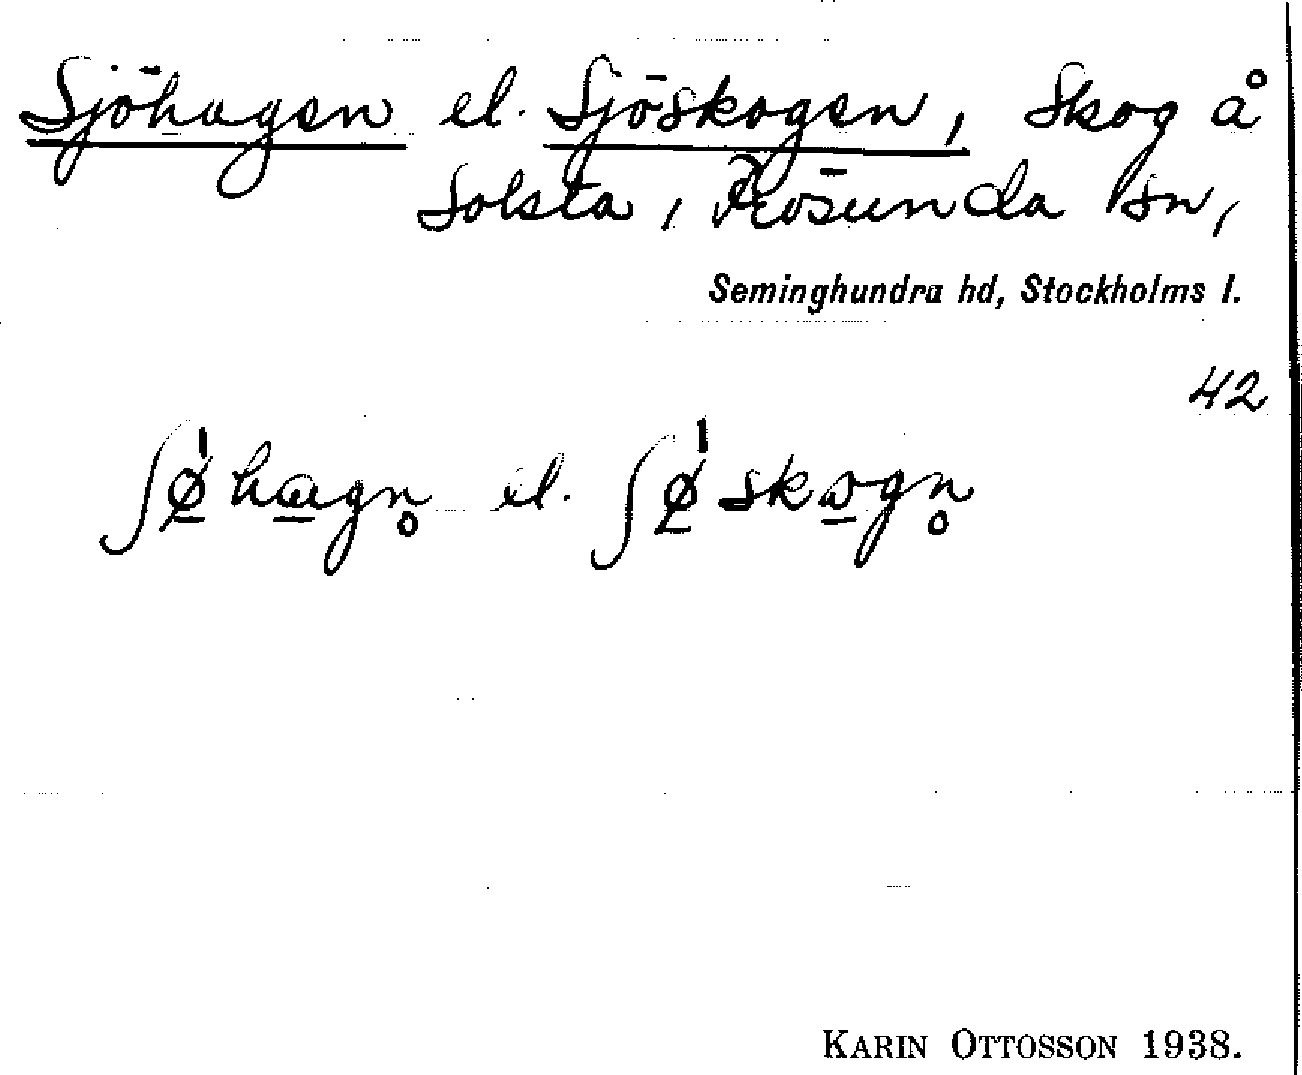 Sjöhagen el. Sjöskogen, Skog å
Solsta, Frösunda sn,
Seminghundra hd, Stockholms l.
42
ʃǿ̠ha̠gn̥ el. ʃǿ̠sko̠gn̥
KARIN OTTOSSON 1938.